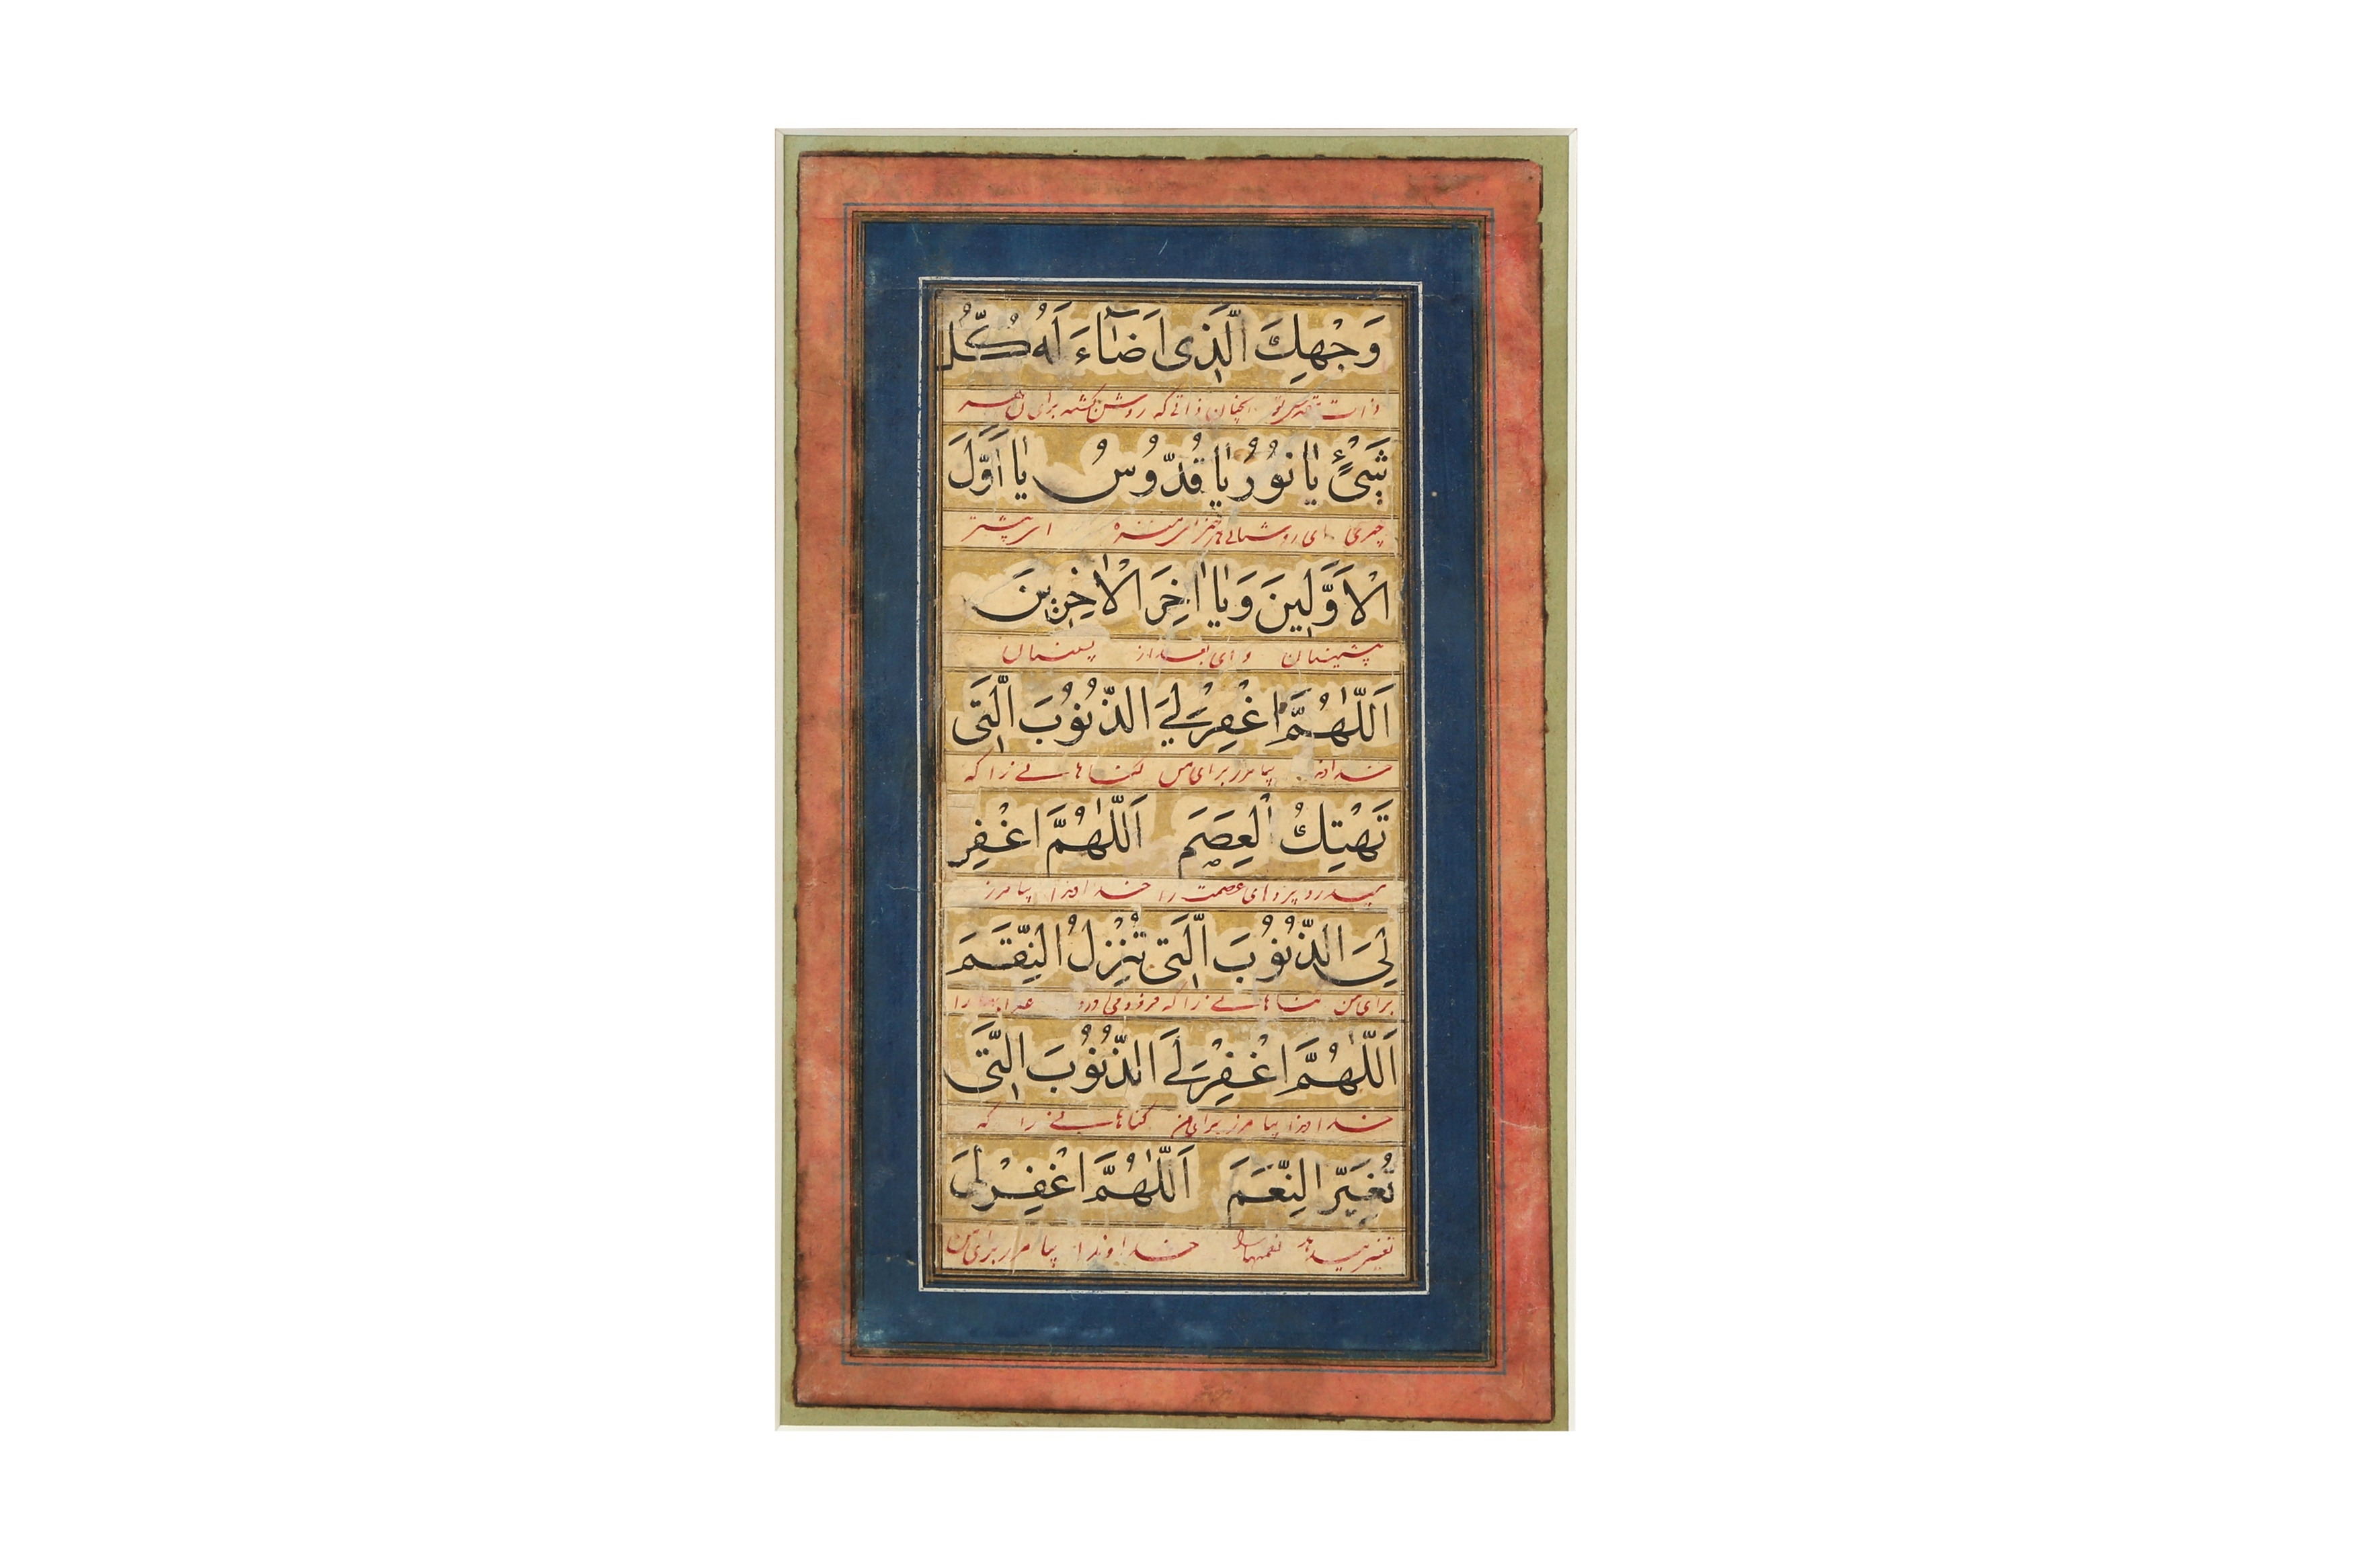 وَجْهِكَ الَّذِى اَضٰٓاءَ لَهُ كُلُّ
ذات تو آنچنان ذاتی که روشن گشته برای آن هر
شَىْءٍ يٰا نُوْرُ يٰا قُدّوُسُ يٰا اَوَّلَ
چیزی ای روشنائی ای منزه ای پیشتر
الْاَوَّلِينَ وَيٰا اٰخِرَ الْاٰخِرِينَ
پیشینیان و ای بعد از پسینیان
اَللّٰهُمَّ اغْفِرْ لِيَ الذُّنُوُبَ الَّتِى
خداوندا بیامرز برای من گناهانی را که
تَهْتِكُ الْعِصَمَ اَللّٰهُمَّ اغْفِرْ
بدرد پردهای عصمت را خداوندا بیامرز
لِىَ الذُّنُوُبَ الَّتِى تُنْزِلُ النِّقَمَ
برای من گناهانی را که فرود می آورد عذابها را
اَللّٰهُمَّ اغْفِرْ لِىَ الذُّنُوُبَ الَّتِى
خداوندا بیامرز برای من گناهانی را که
تُغَيِّرُ النِّعَمَ اَللّٰهُمَّ اغْفِرْ لِىَ
تغییر میدهد نعمتها را خداوندا بیامرز برای من